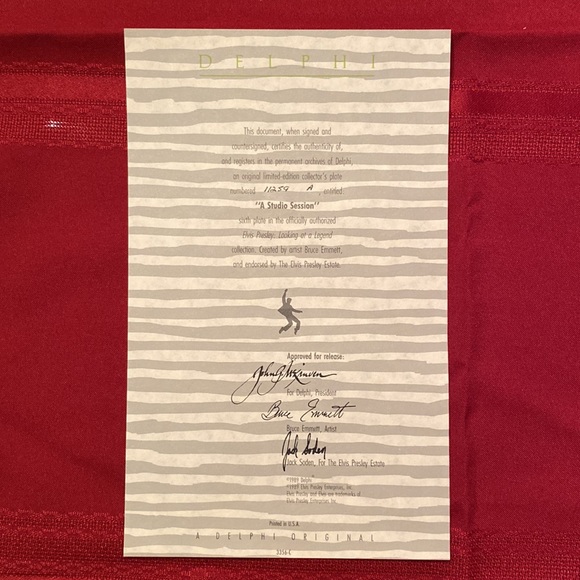 DELPHI
This document, when signed and
countersigned, certifies the authenticity of,
and registers in the permanent archives of Delphi,
an original limited-edition collector's plate
numbered 11259 A, entitled:
"A Studio Session"
sixth plate in the officially authorized
Elvis Presley: Looking at a Legend
collection. Created by artist Bruce Emmett,
and endorsed by The Elvis Presley Estate.
Approved for release:
For Delphi, President
Bruce Emmett
Bruce Emmett, Artist
Jack Soden
Jack Soden, For The Elvis Presley Estate
©1989 Delphi
©1989 Elvis Presley Enterprises, Inc.
Elvis Presley and Elvis are trademarks of
Elvis Presley Enterprises Inc.
Printed in U.S.A.
A DELPHI ORIGINAL